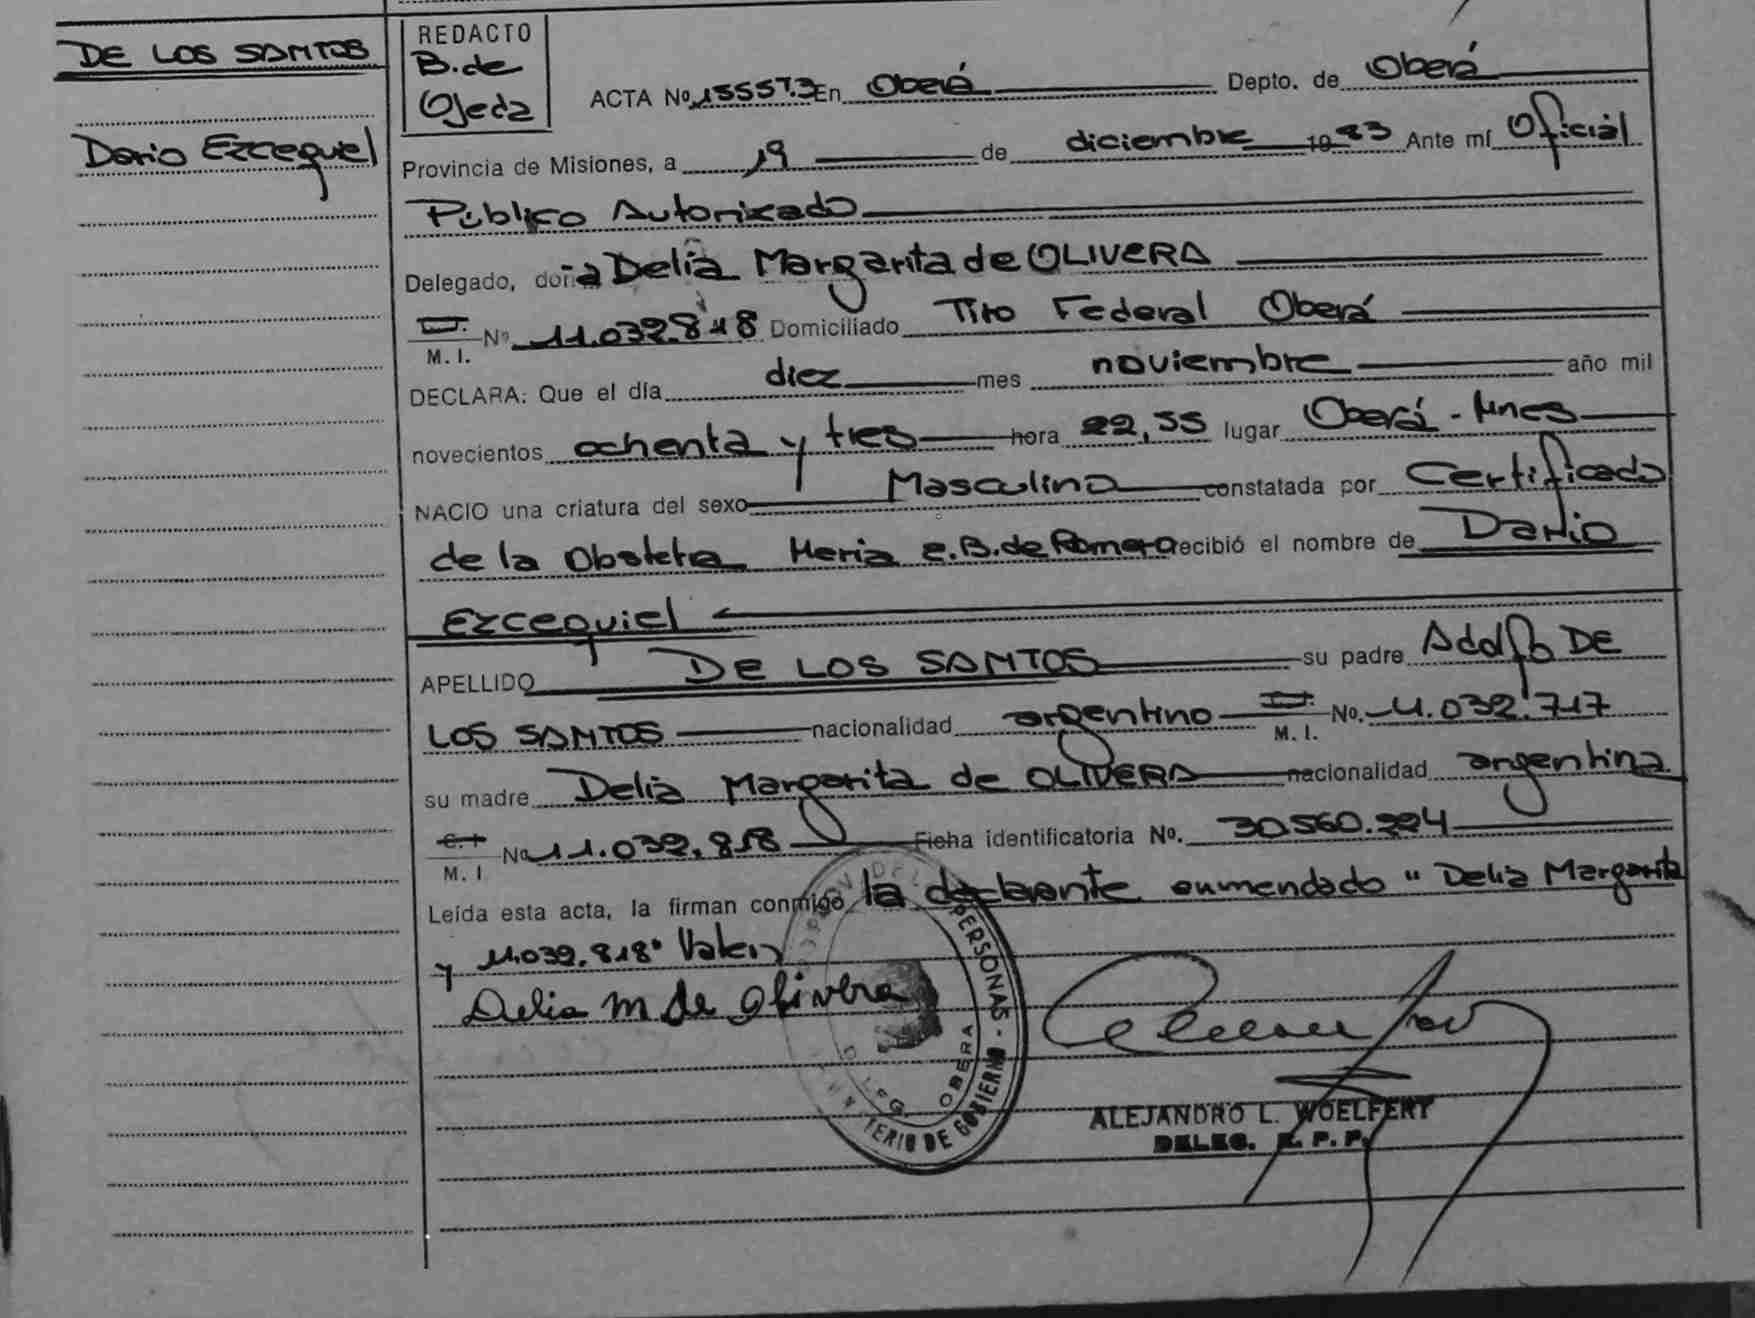 DE LOS SANTOS
Dario Ezcequiel
REDACTO
B. de
Ojeda
ACTA No 1555T.3 En Oberá Depto. de Oberá
Provincia de Misiones, a 19 de diciembre 1983 Ante mí Oficial
Público Autorizado
Delegado, doña Delia Margarita de OLIVERA
No 11.032.818 Domiciliado Tiro Federal Oberá
M. I.
DECLARA: Que el día diez mes noviembre año mil
novecientos ochenta y tres hora 22,55 lugar Oberá - Mnes
NACIO una criatura del sexo Masculino constatada por Certificado
de la Obstetra Maria E. B. de Romero recibió el nombre de Dario
Ezcequiel
APELLIDO DE LOS SANTOS su padre Adolfo DE
LOS SANTOS nacionalidad argentino No. 11.032.717
M. I.
su madre Delia Margarita de OLIVERA nacionalidad argentina
C. I
No 11.032.818 Ficha identificatoria No. 30.560.224
M. I
Leída esta acta, la firman conmigo la declarante enmendado " Delia Margarita
y 11.032.818" Valen
Delia M de Olivera
PERSONAS - OBERA
TERIO DE GOBIERNO
ALEJANDRO L. WOELFERT
DELEG. R. P. P.